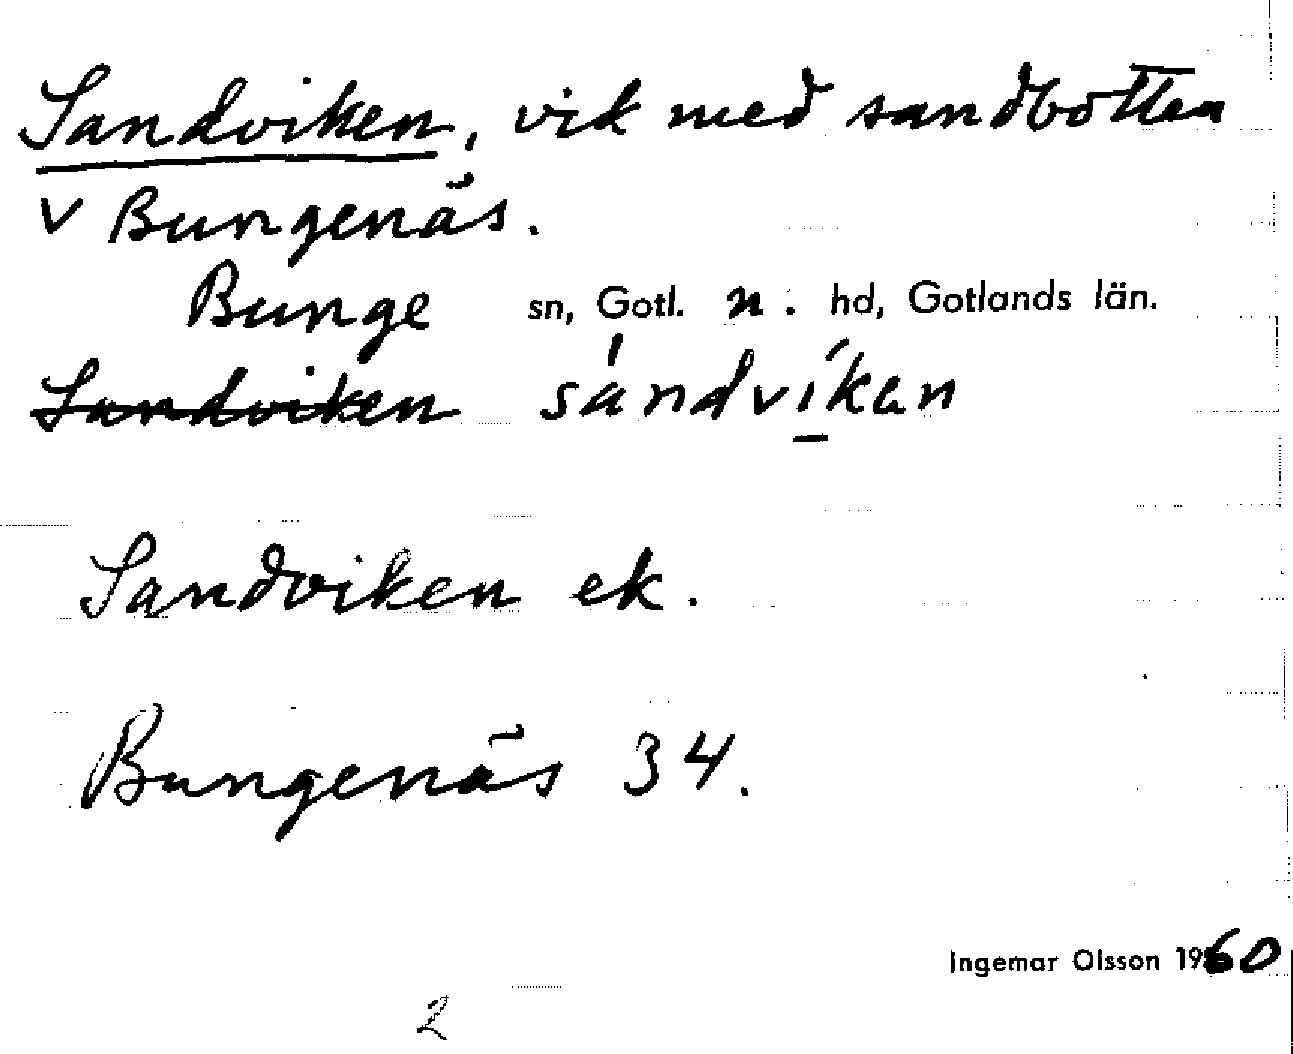 Sandviken, vik med sandbotten
v Bungenäs.
Bunge sn, Gotl. n. hd, Gotlands län.
Sandviken sándvíkan
Sandviken ek.
Bungenäs 34.
Ingemar Olsson 1960
2